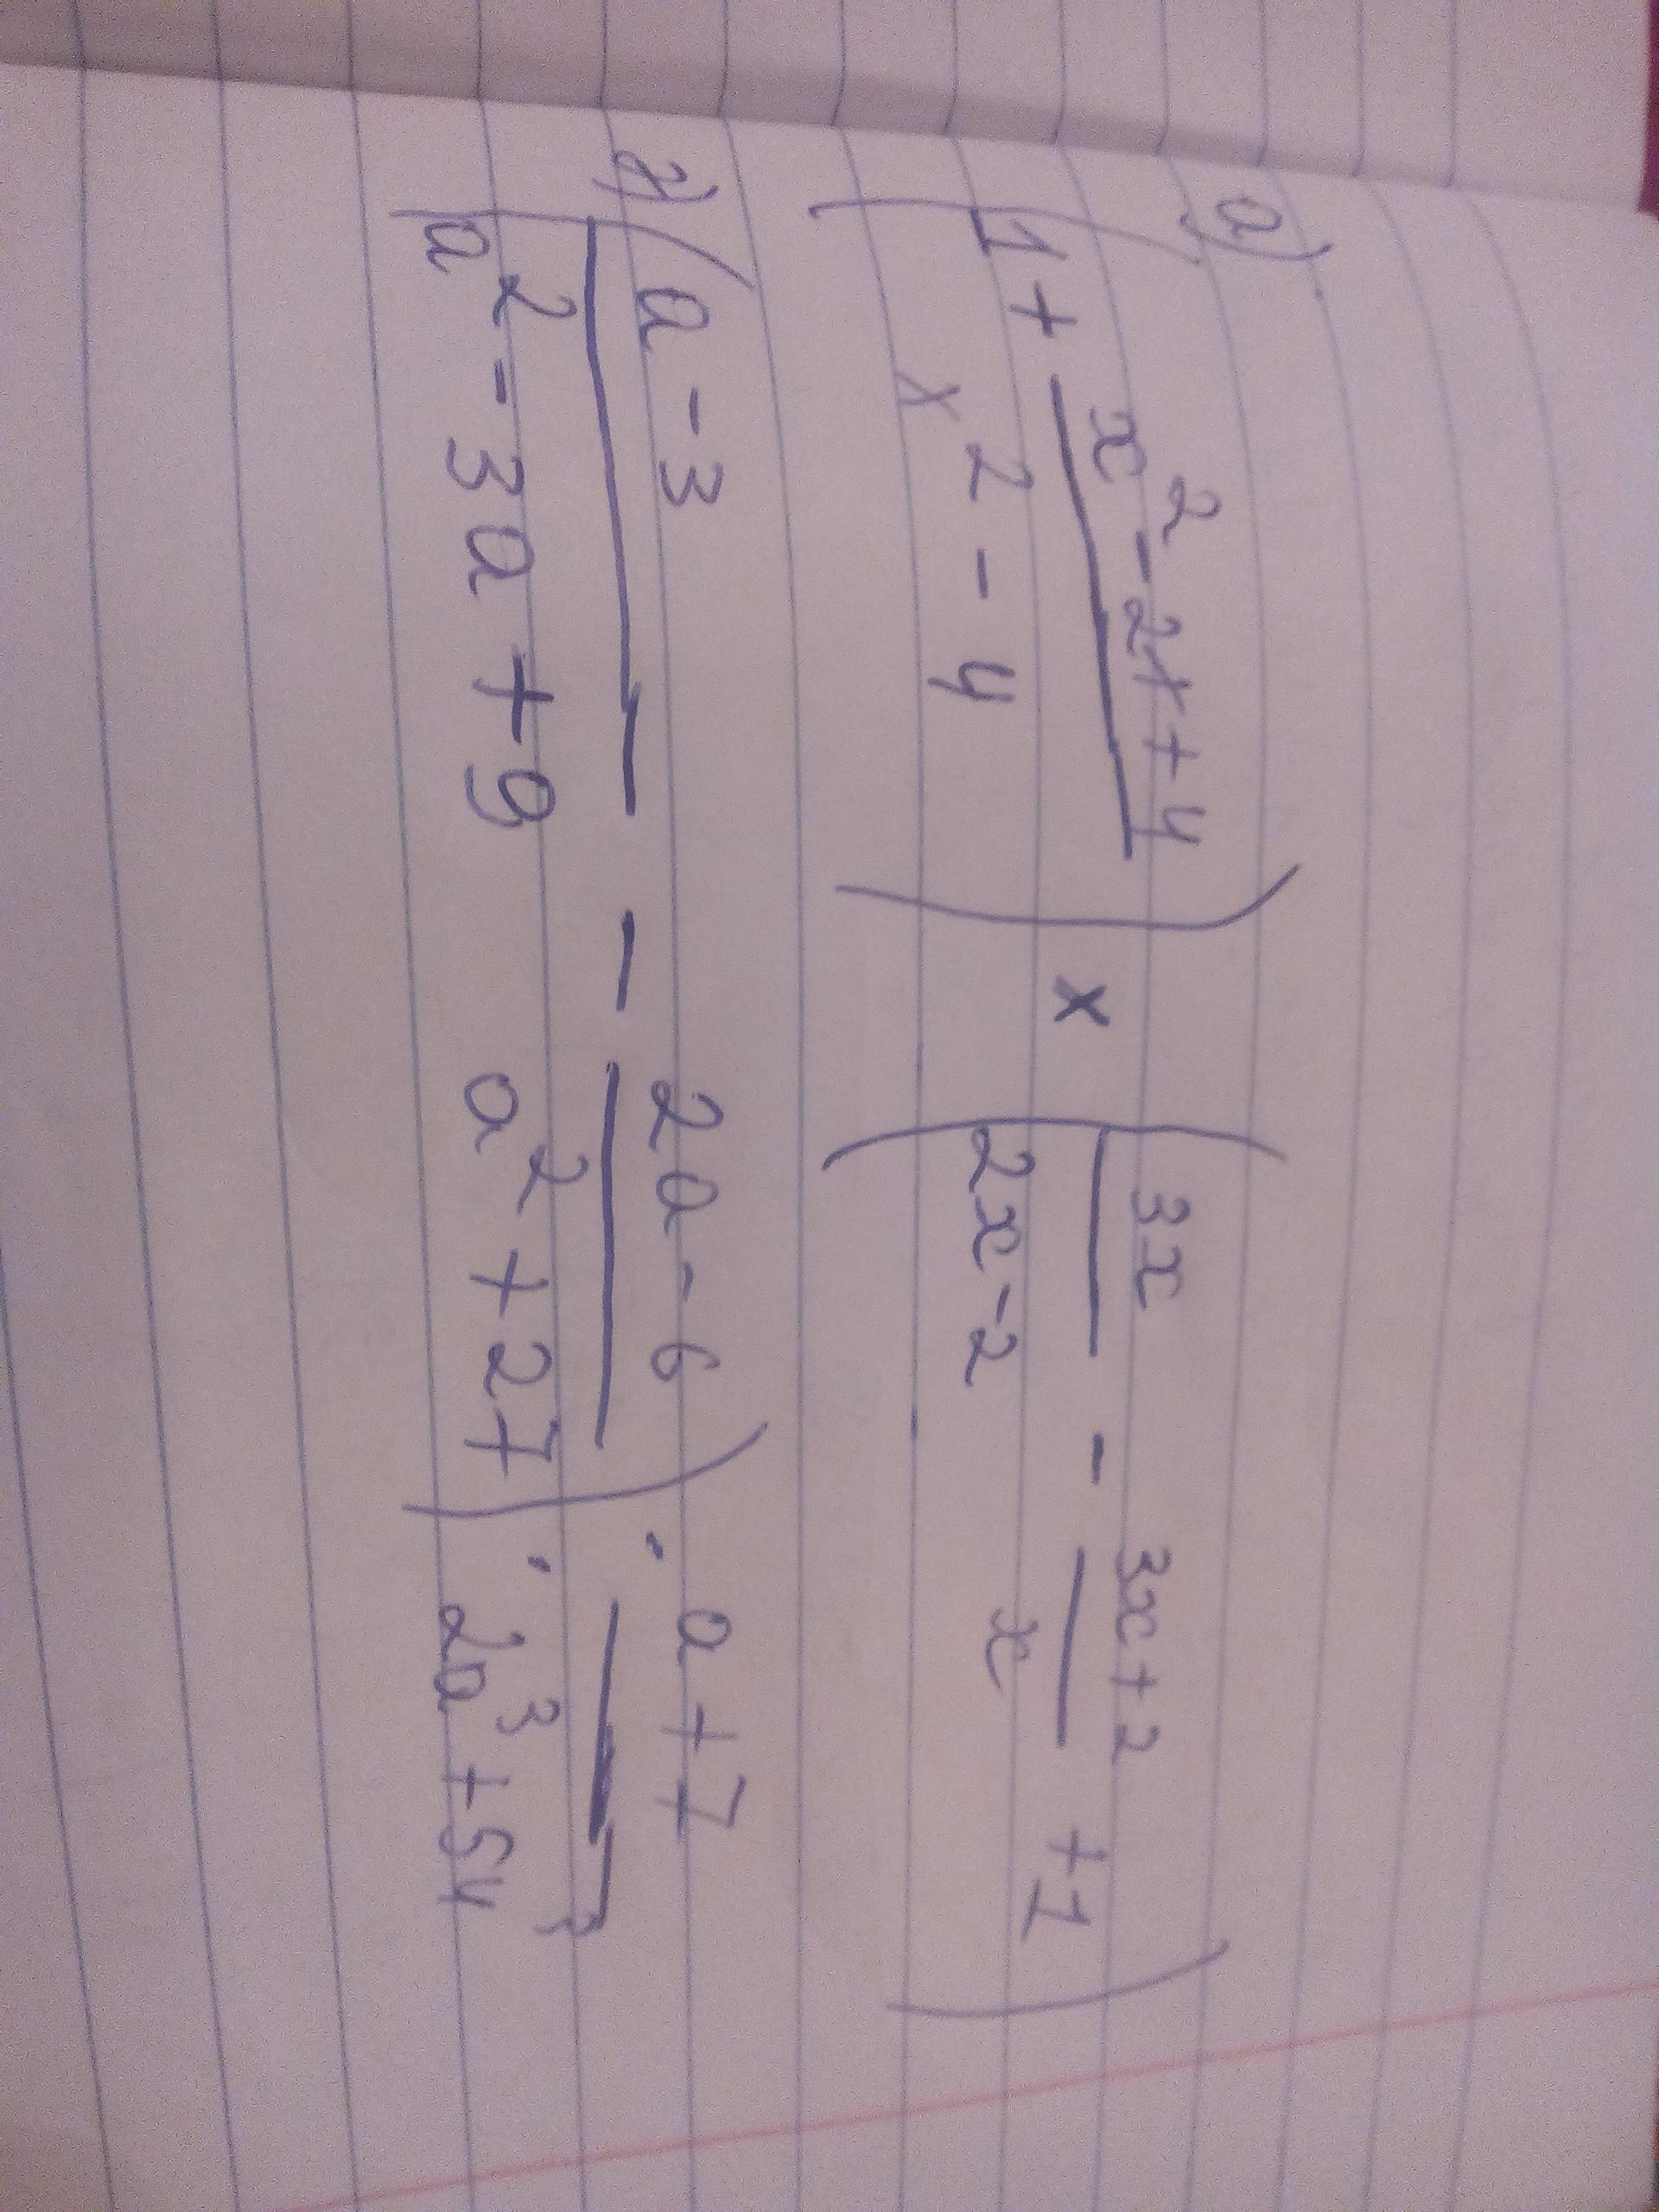 а)
(1 + (x² - 2x + 4)/(x² - 4)) × (3x/(2x - 2) - (3x + 2)/x + 1)
г) ((a - 3)/(a² - 3a + 9) - (2a - 6)/(a² + 27)) : (a + 7)/(2a³ + 54)